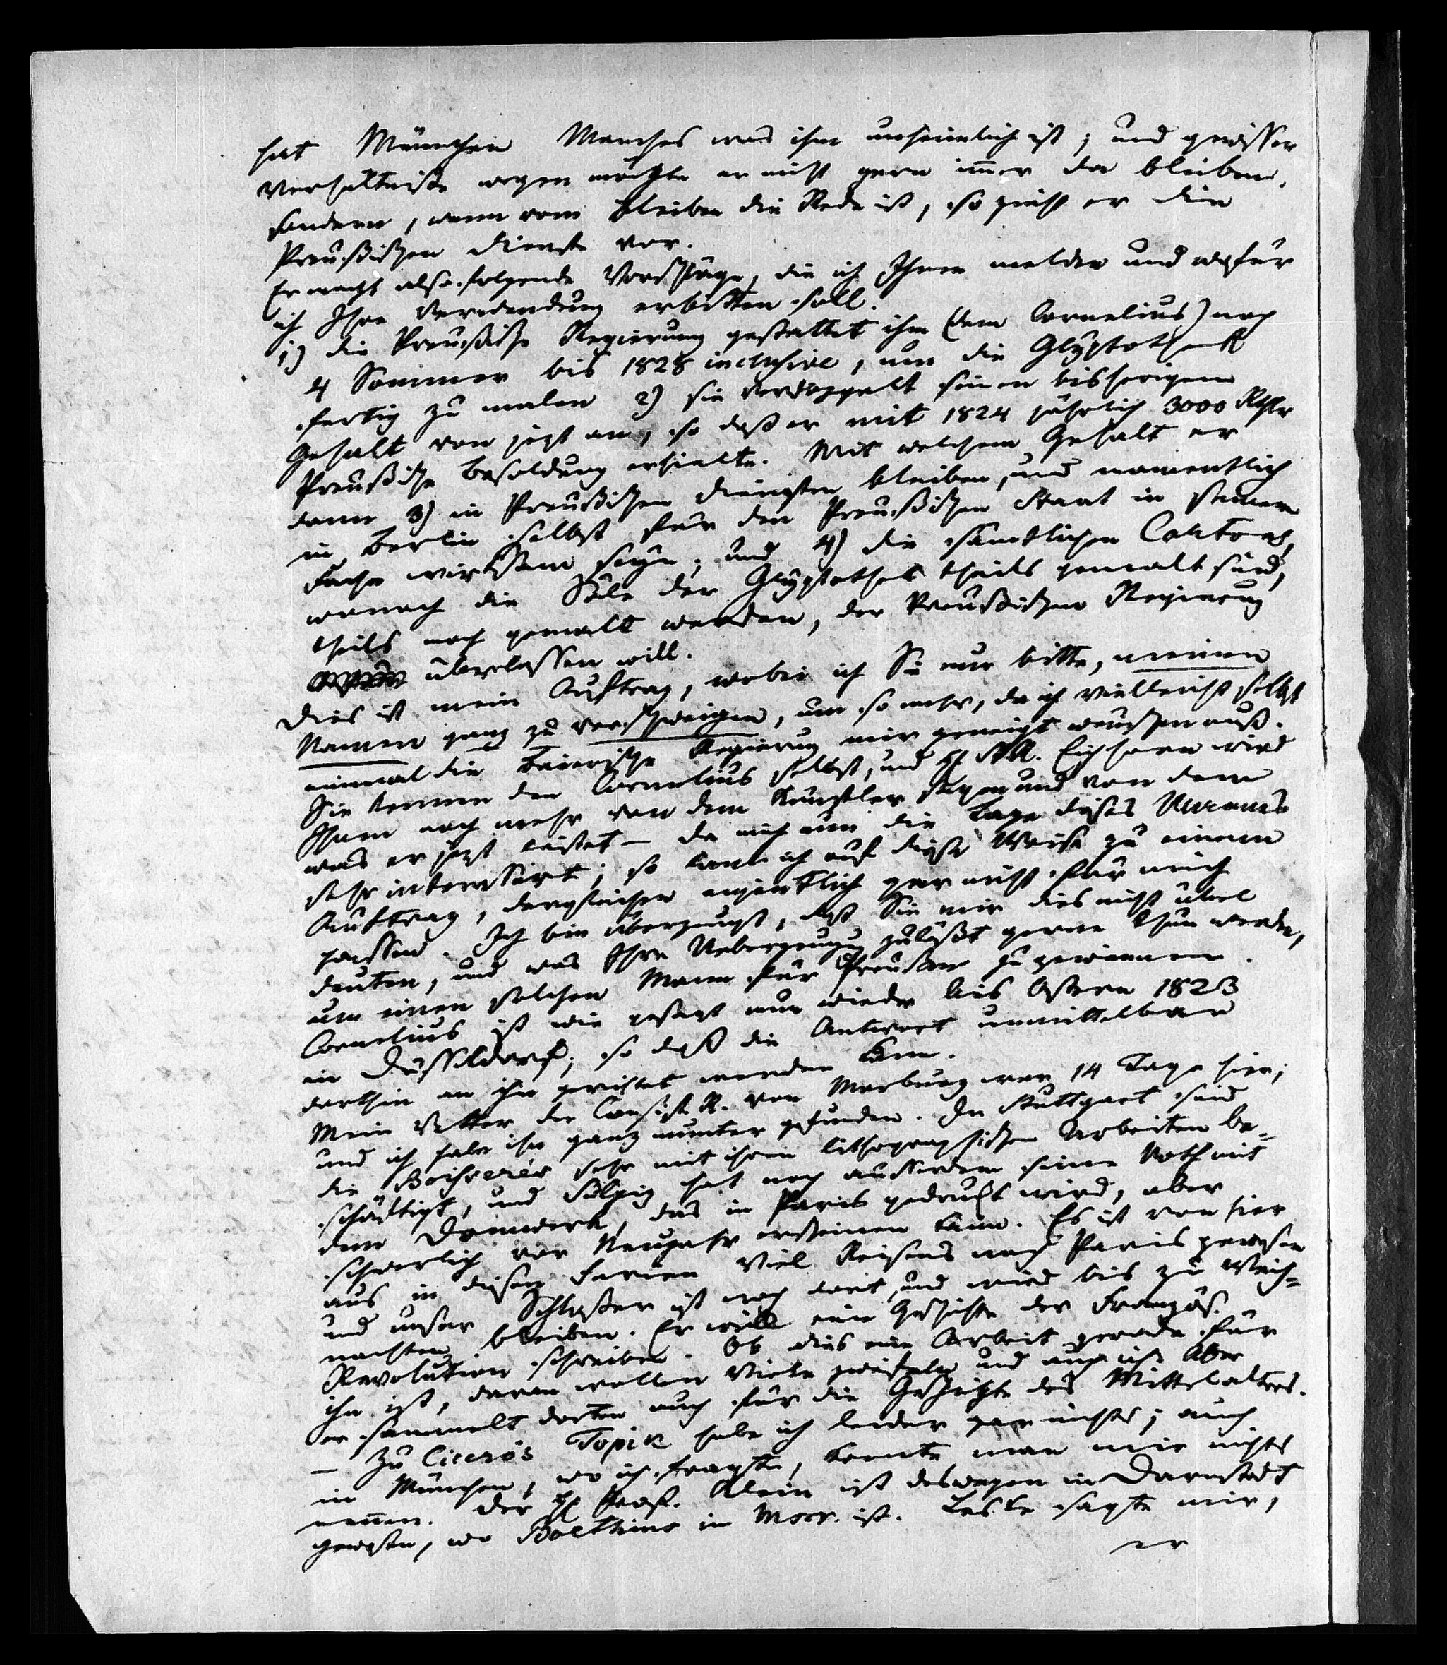 hat München Manches was ihm unheimlich ist; und gewisser
Verhältniße wegen möchte er nicht gern immer da bleiben,
sondern, wenn vom Bleiben die Rede ist, so zieht er die
Preußischen Dienste vor.
Er macht also folgende Vorschläge, die ich Ihnen melden und wofür
ich Ihre Verwendung erbitten soll.
1) die Preußische Regierung gestattet ihm (dem Cornelius) noch
4 Sommer bis 1828 inclusive, um die Glyptothek
fertig zu malen 2) sie verdoppelt seinen bisherigen
Gehalt von jezt an, so daß er mit 1824 jährlich 3000 Rthlr
Preußische Besoldung erhielte. Mit welchem Gehalt er
dann 3) in Preußischen Diensten bleiben, und namentlich
in Berlin selbst für den Preußischen Staat in seinem
Fache wirksam seyn; und 4) die sämtlichen Cartons,
wonach die Säle der Glyptothek theils gemalt sind,
theils noch gemalt werden, der Preußischen Regierung
überlassen will.
Dies ist mein Auftrag, wobei ich Sie nur bitte, meinen
Namen ganz zu verschweigen, um so mehr, da ich vielleicht selbst
einmal die Baierische Regierung mir geneigt wünschen muß.
Sie kennen den Cornelius selbst, und H. Eichhorn wird
Ihnen noch mehr von dem Künstler sagen und von dem
was er jezt leistet – da mich nun die Lage dieses Mannes
sehr interessirt; so kam ich auf diese Weise zu einem
Auftrag, dergleichen eigentlich gar nicht für mich
passen. Ich bin überzeugt, daß Sie mir dies nicht übel
deuten, und was Ihre Ueberzeugung zuläßt gerne thun werden,
um einen solchen Mann für Preußen zu gewinnen.
Cornelius ist wie gesagt nun wieder bis Ostern 1823
in Düsseldorf; so daß die Antwort unmittelbar
dorthin an ihn gerichtet werden kan.
Mein Vetter der Consist. R. von Marburg war 14 Tage hier;
und ich habe ihn ganz munter gefunden. In Stuttgart sind
die Boisserées sehr mit ihren lithographischen Arbeiten be-
schäftigt, und Sulpiz hat noch ausserdem seine Noth mit
dem Domwerk, das in Paris gedruckt wird, aber
schwerlich vor Neujahr erscheinen kann. Es ist von hier
aus in diesen Ferien viel Reisens nach Paris gewesen
und unser Schlosser ist noch dort, und wird bis zu Weih-
nachten bleiben. Er will eine Geschichte der Französ.
Revolution schreiben. Ob dies eine Arbeit gerade für
ihn ist, daran wollen Viele zweifeln und auch ich. Aber
er sammelt dorten auch für die Geschichte des Mittelalters.
– Zu Cicero's Topik habe ich leider gar nichts; auch
in München, wo ich fragte, konnte man mir nichts
nennen. Der H. Prof. Klein ist deswegen in Darmstadt
gewesen, wo Boethius in Mscr. ist. Leske sagte mir,
er